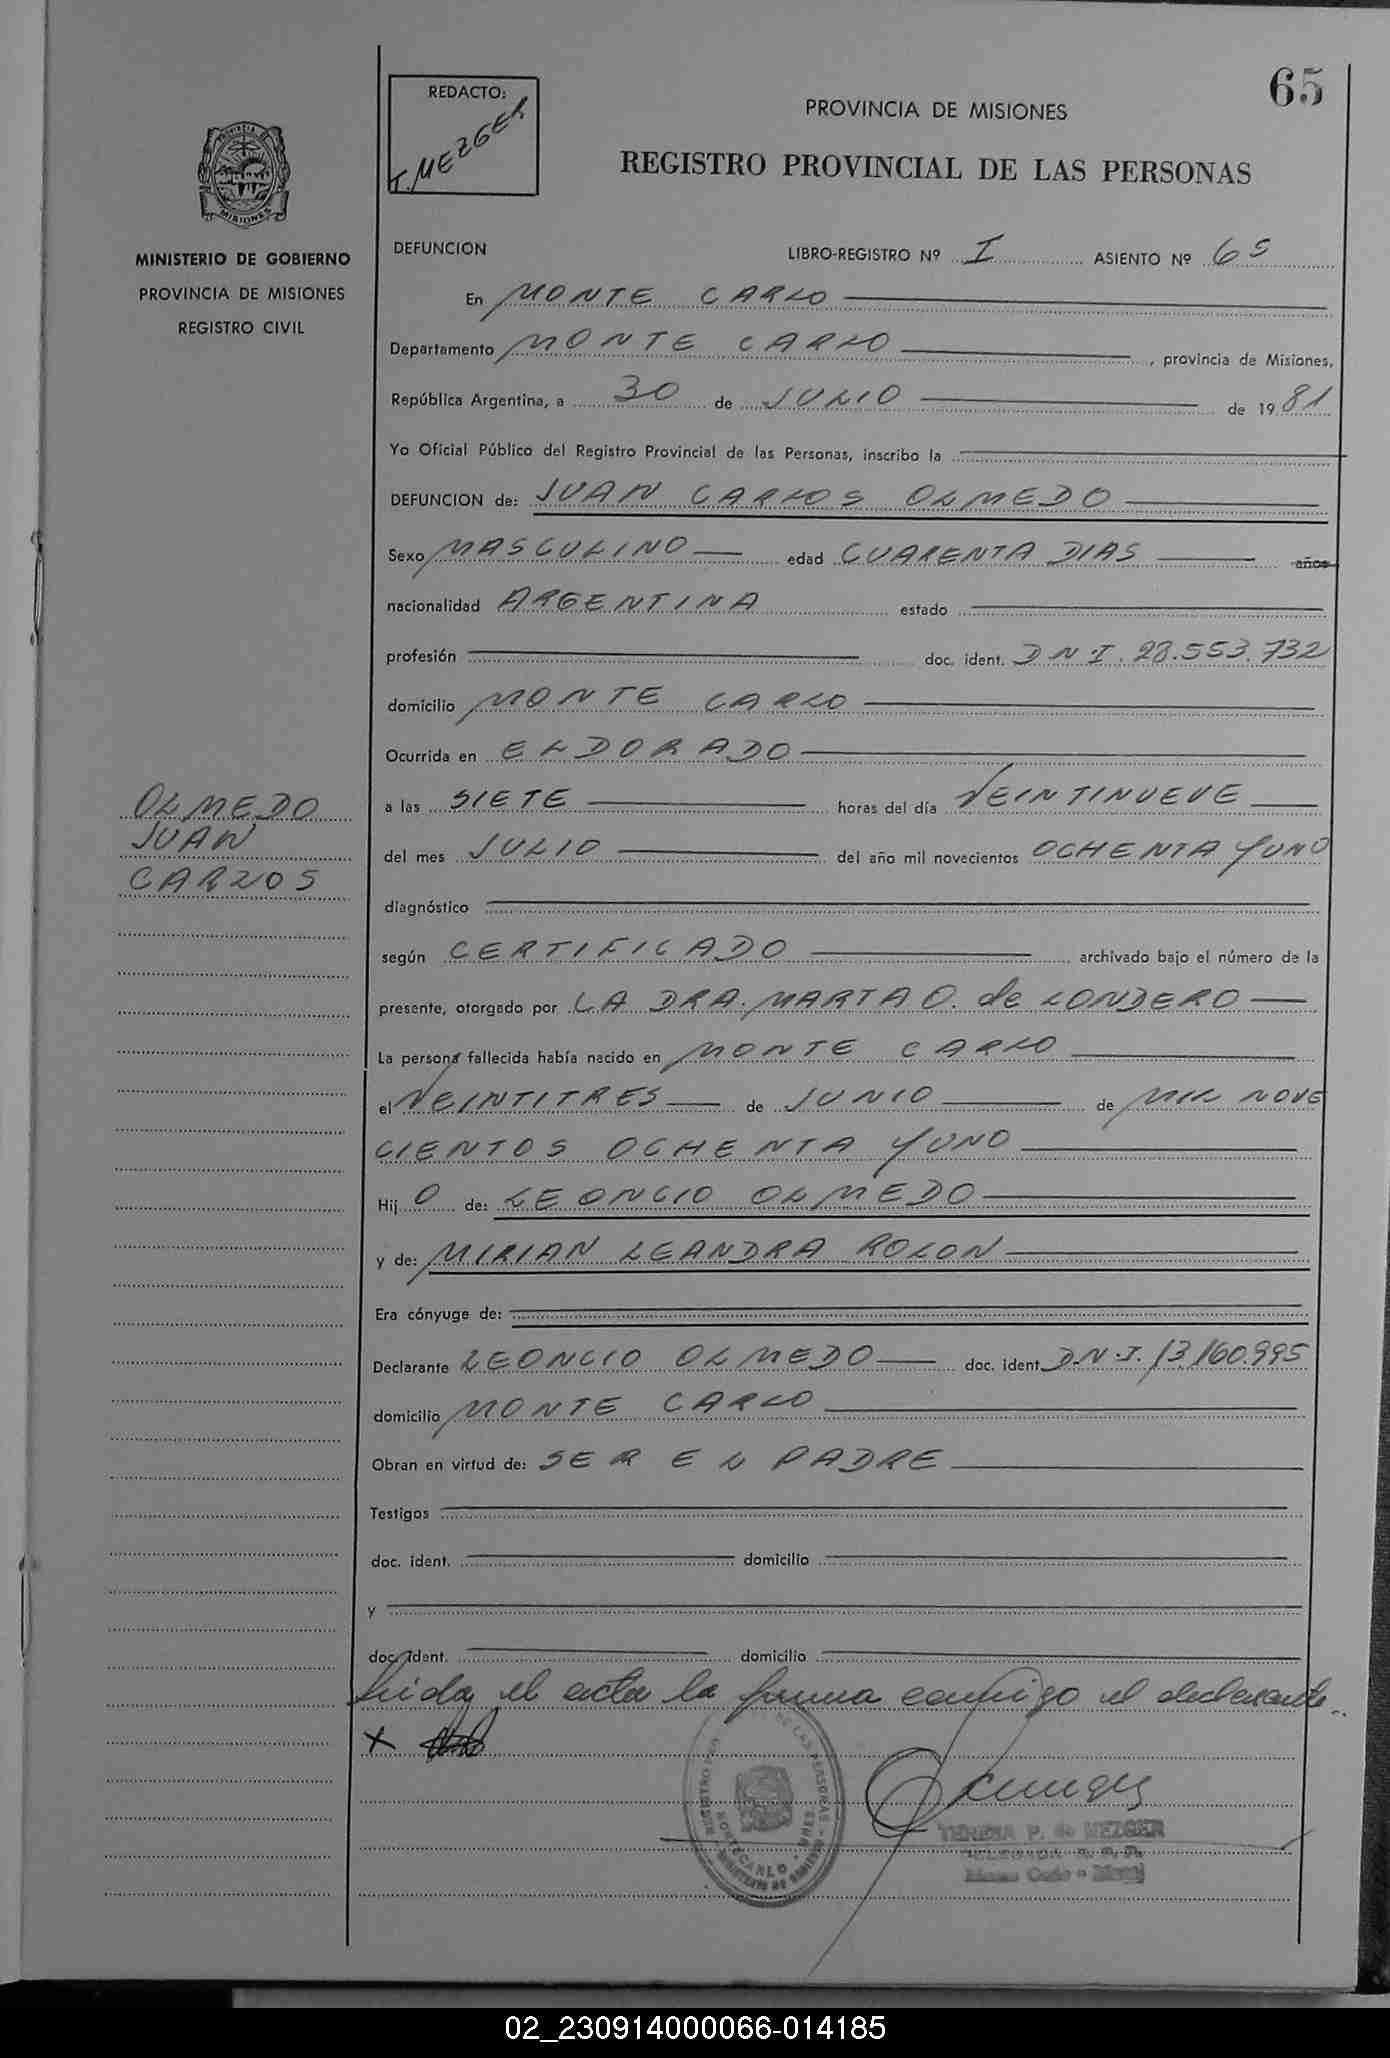 65
REDACTO:
T. MEZGER
PROVINCIA DE MISIONES
REGISTRO PROVINCIAL DE LAS PERSONAS
PROVINCIA DE
MISIONES
MINISTERIO DE GOBIERNO
PROVINCIA DE MISIONES
REGISTRO CIVIL
DEFUNCION LIBRO-REGISTRO Nº I ASIENTO Nº 65
En MONTE CARLO
Departamento MONTE CARLO, provincia de Misiones,
República Argentina, a 30 de JULIO de 1981
Yo Oficial Público del Registro Provincial de las Personas, inscribo la
DEFUNCION de: JUAN CARLOS OLMEDO
Sexo MASCULINO edad CUARENTA DIAS años
nacionalidad ARGENTINA estado
profesión doc. ident. D N.I. 28.553.732
domicilio MONTE CARLO
Ocurrida en ELDORADO
OLMEDO
JUAN
CARLOS
a las SIETE horas del día VEINTINUEVE
del mes JULIO del año mil novecientos OCHENTA Y UNO
diagnóstico
según CERTIFICADO archivado bajo el número de la
presente, otorgado por LA DRA. MARTA O. de LONDERO
La persona fallecida había nacido en MONTE CARLO
el VEINTITRES de JUNIO de MIL NOVE
CIENTOS OCHENTA Y UNO
Hij O de: LEONCIO OLMEDO
y de: MIRIAN LEANDRA ROLON
Era cónyuge de:
Declarante LEONCIO OLMEDO doc. ident. D.N.I. 13.160.995
domicilio MONTE CARLO
Obran en virtud de: SER EL PADRE
Testigos
doc. ident. domicilio
y
doc. ident. domicilio
Leida el acta la firma conmigo el declarante..
X
TERESA P. de MEZGER
DELEGADA R. P. P.
Monte Carlo - Mnes
02_230914000066-014185